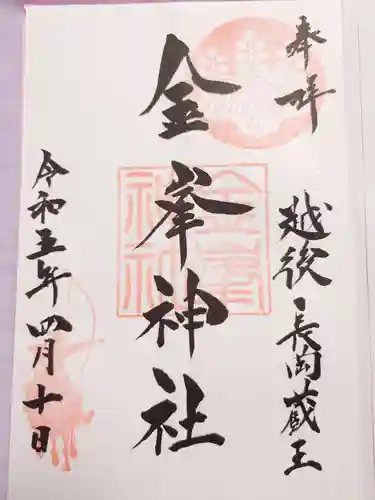 奉拝
越後長岡蔵王
金峯神社
令和五年四月十日